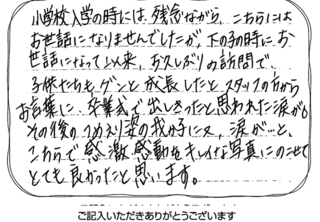 小学校入学の時には、残念ながら、こちらには
お世話になりませんでしたが、下の子の時にお
世話になって以来、お久しぶりの訪問で
子供たちもグンと成長したと、スタッフの方から
お言葉に、卒業式で出しきったと思われた涙が。
その後のつめえり姿の我が子に又、涙が…と、
こちらで感激感動をキレイな写真にのこせて
とても良かったと思います。
ご記入いただきありがとうございます